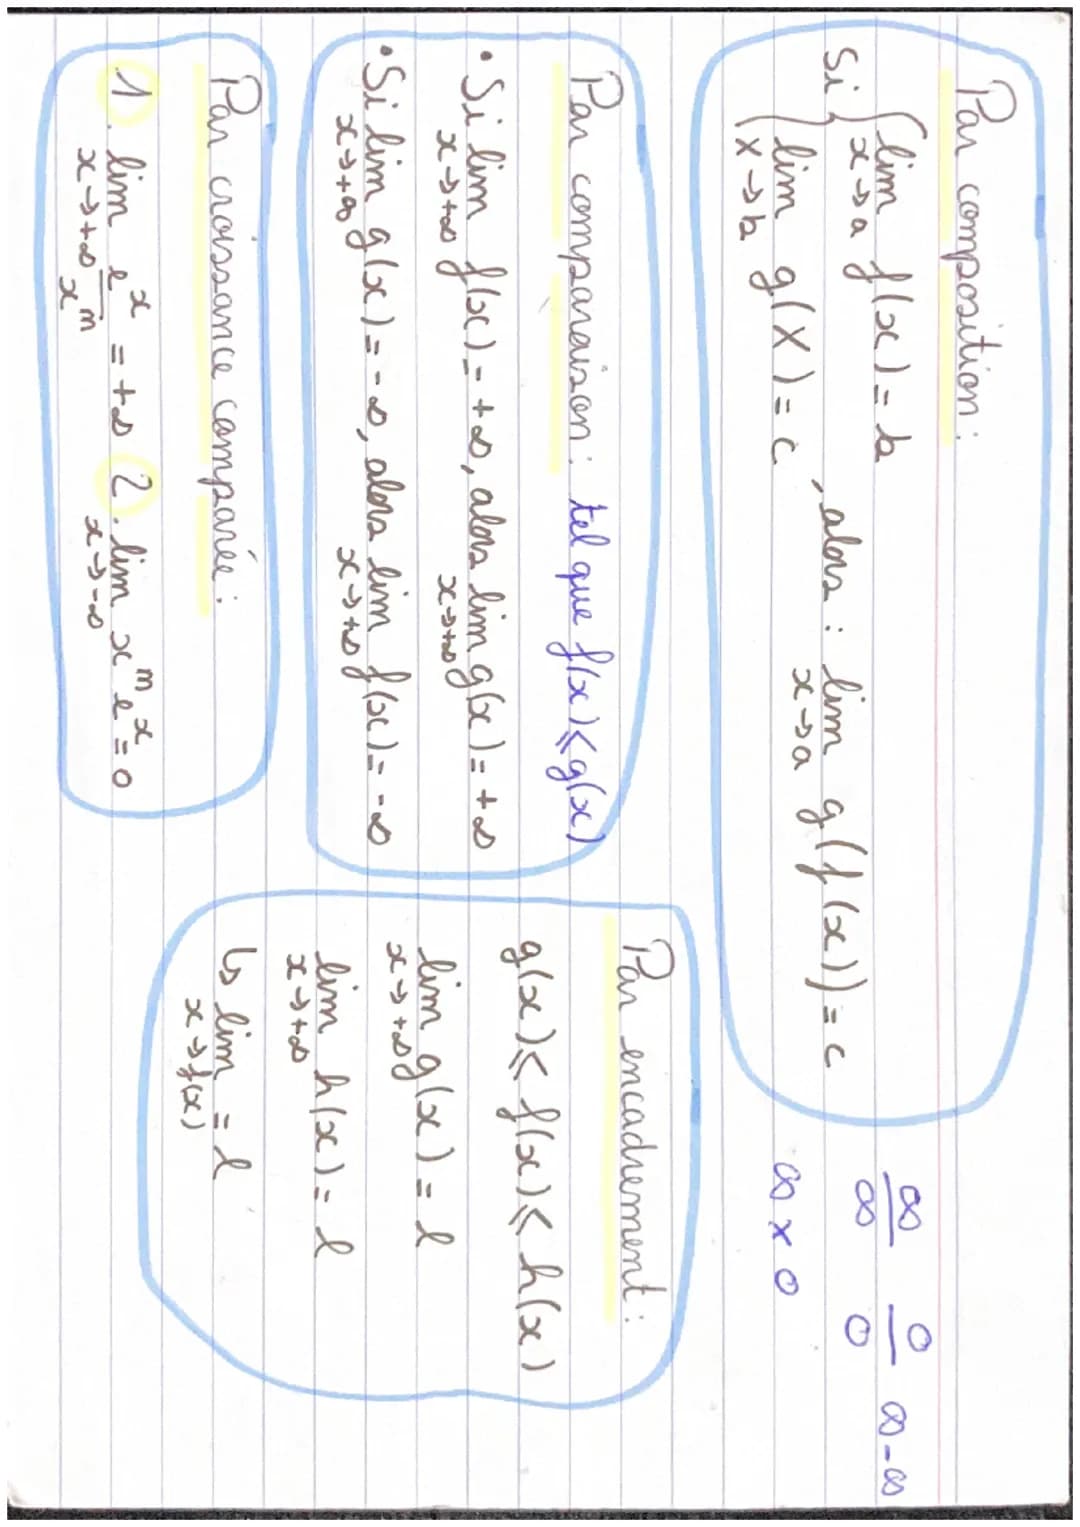 Par composition :
Si { lim f(x) = b
x→a
lim g(X) = c
X→b
, alors : lim g(f(x)) = c
x→a
∞/∞ 0/0 ∞-∞
∞ × 0
Par comparaison : tel que f(x) ⩽ g(x)
• Si lim f(x) = +∞, alors lim g(x) = +∞
x→+∞ x→+∞
• Si lim g(x) = -∞, alors lim f(x) = -∞
x→+∞ x→+∞
Par encadrement :
g(x) ⩽ f(x) ⩽ h(x)
lim g(x) = l
x→+∞
lim h(x) = l
x→+∞
↳ lim = l
x→f(x)
Par croissance comparée :
1. lim e^x/x^n = +∞ 2. lim x^n e^x = 0
x→+∞ x→-∞